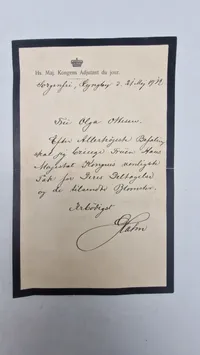 Hs. Maj. Kongens Adjutant du jour.
Sorgenfri, Lyngby d. 21 Maj 1912.
Frk Olga Ottosen
Efter Allerhøjeste Befaling
skal jeg bringe Hans
Majestæt Kongens venligste
Tak for Deres Deltagelse
og de tilsendte Blomster.
Ærbødigst